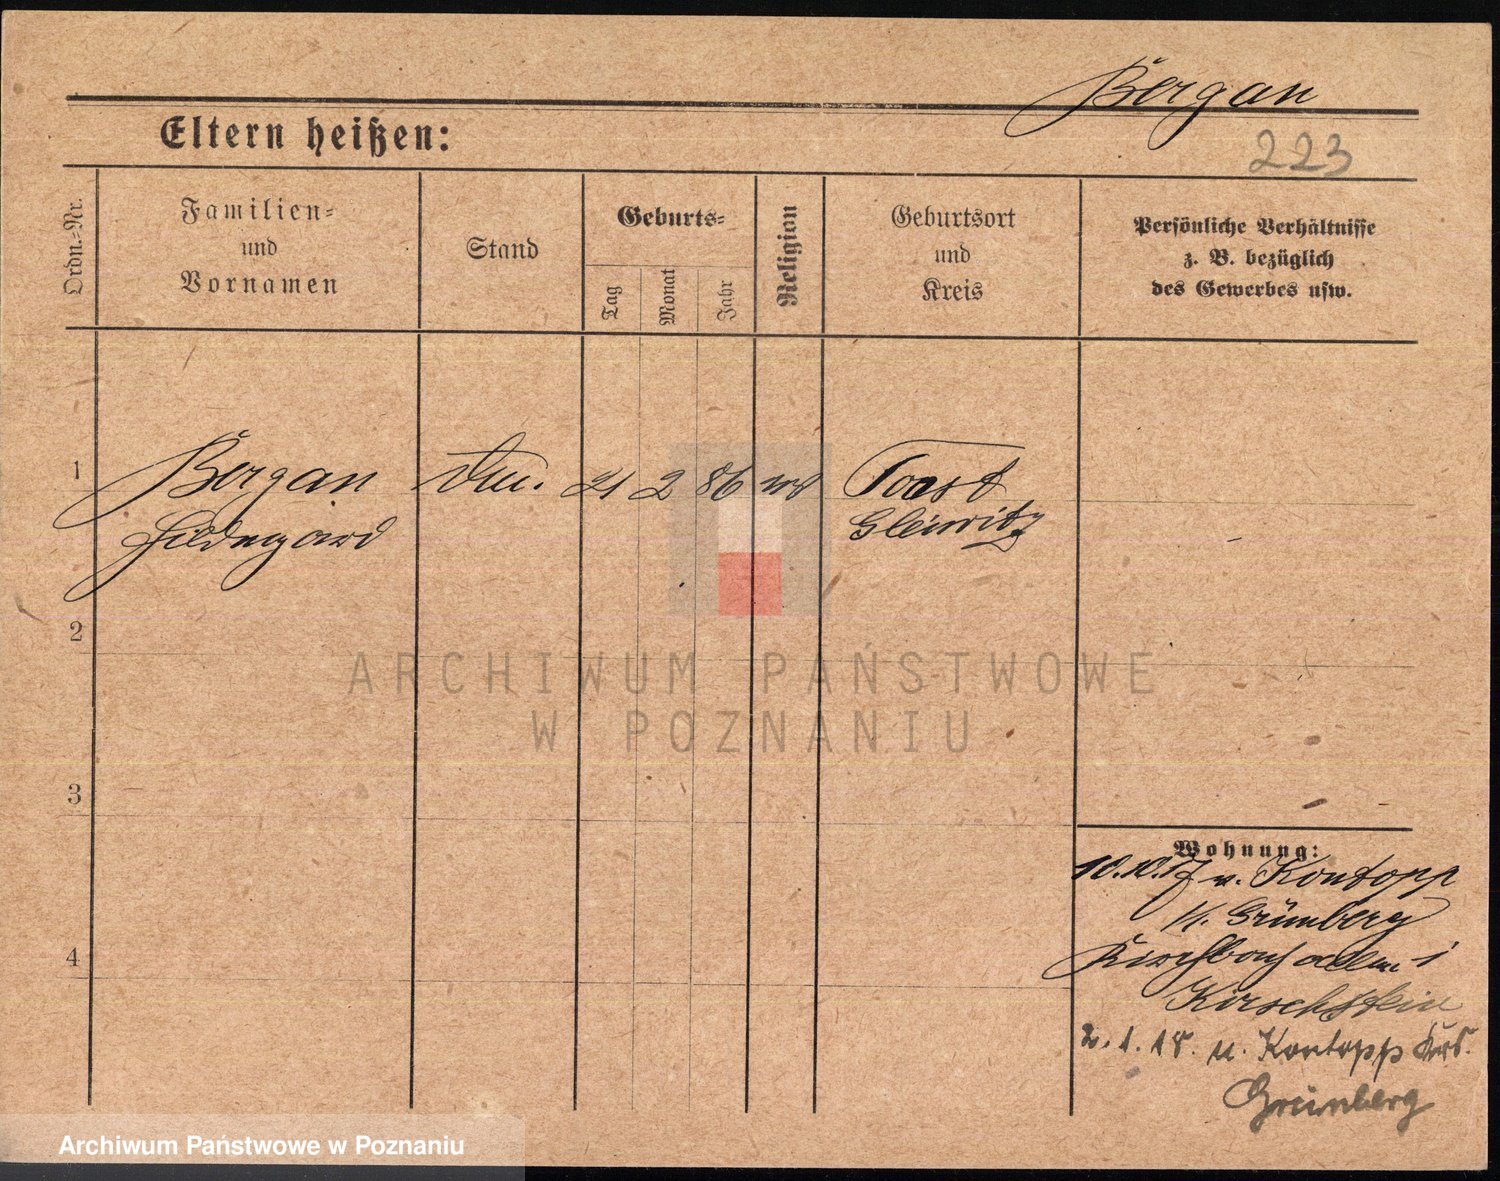 Bergan
223
Eltern heißen:
Ordn.-Nr.
Familien-
und
Vornamen
Stand
Geburts-
Tag
Monat
Jahr
Religion
Geburtsort
und
Kreis
Persönliche Verhältnisse
z. B. bezüglich
des Gewerbes usw.
1
Bergan
Hildegard
21 2 86
Toost
Gleiwitz
2
ARCHIWUM PAŃSTWOWE
W POZNANIU
3
Wohnung:
10.10.17 v. Kontopp
Grünberg
4
Kirschstein
2.1.18. n. Kontopp Krs.
Grünberg
Archiwum Państwowe w Poznaniu